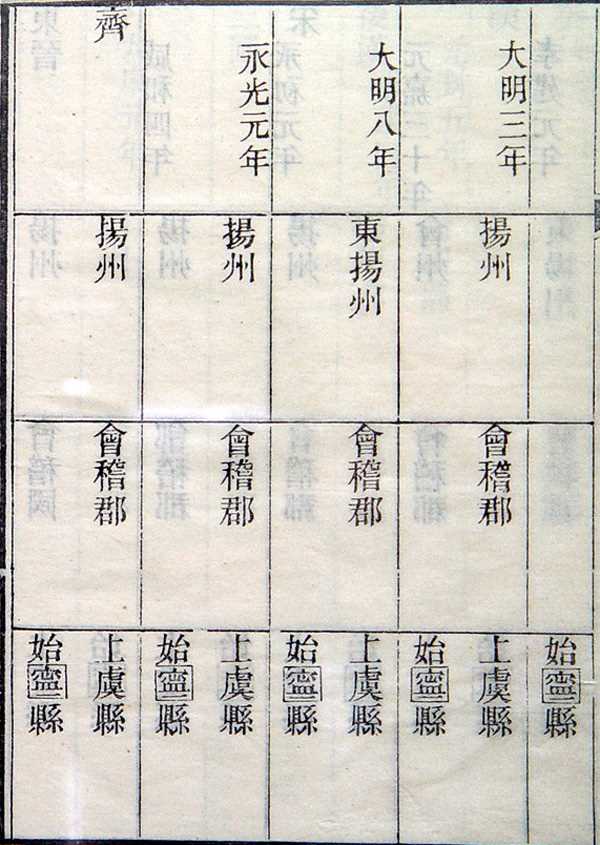 始寍縣
大明三年
揚州
會稽郡
上虞縣
始寍縣
大明八年
東揚州
會稽郡
上虞縣
始寍縣
永光元年
揚州
會稽郡
上虞縣
始寍縣
齊
揚州
會稽郡
上虞縣
始寍縣